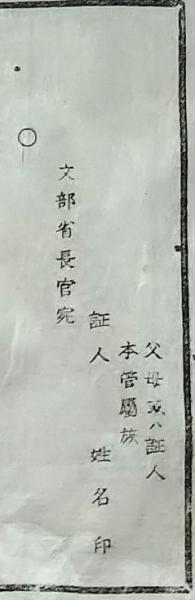 父母或ハ証人
本管屬族
証人 姓名印
文部省長官宛
○